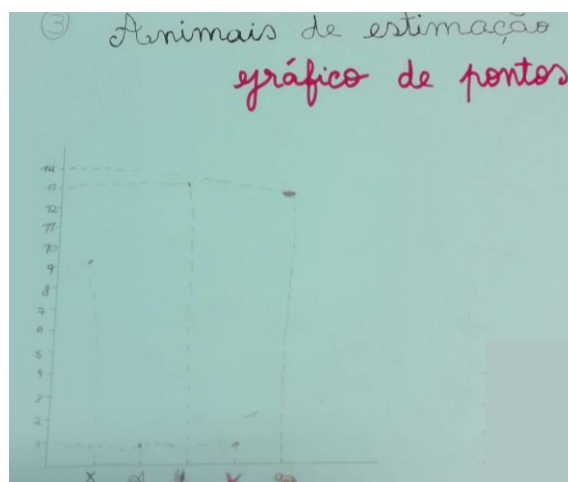 ③ Animais de estimação
gráfico de pontos
14
13
12
11
10
9
8
7
6
5
3
2
1